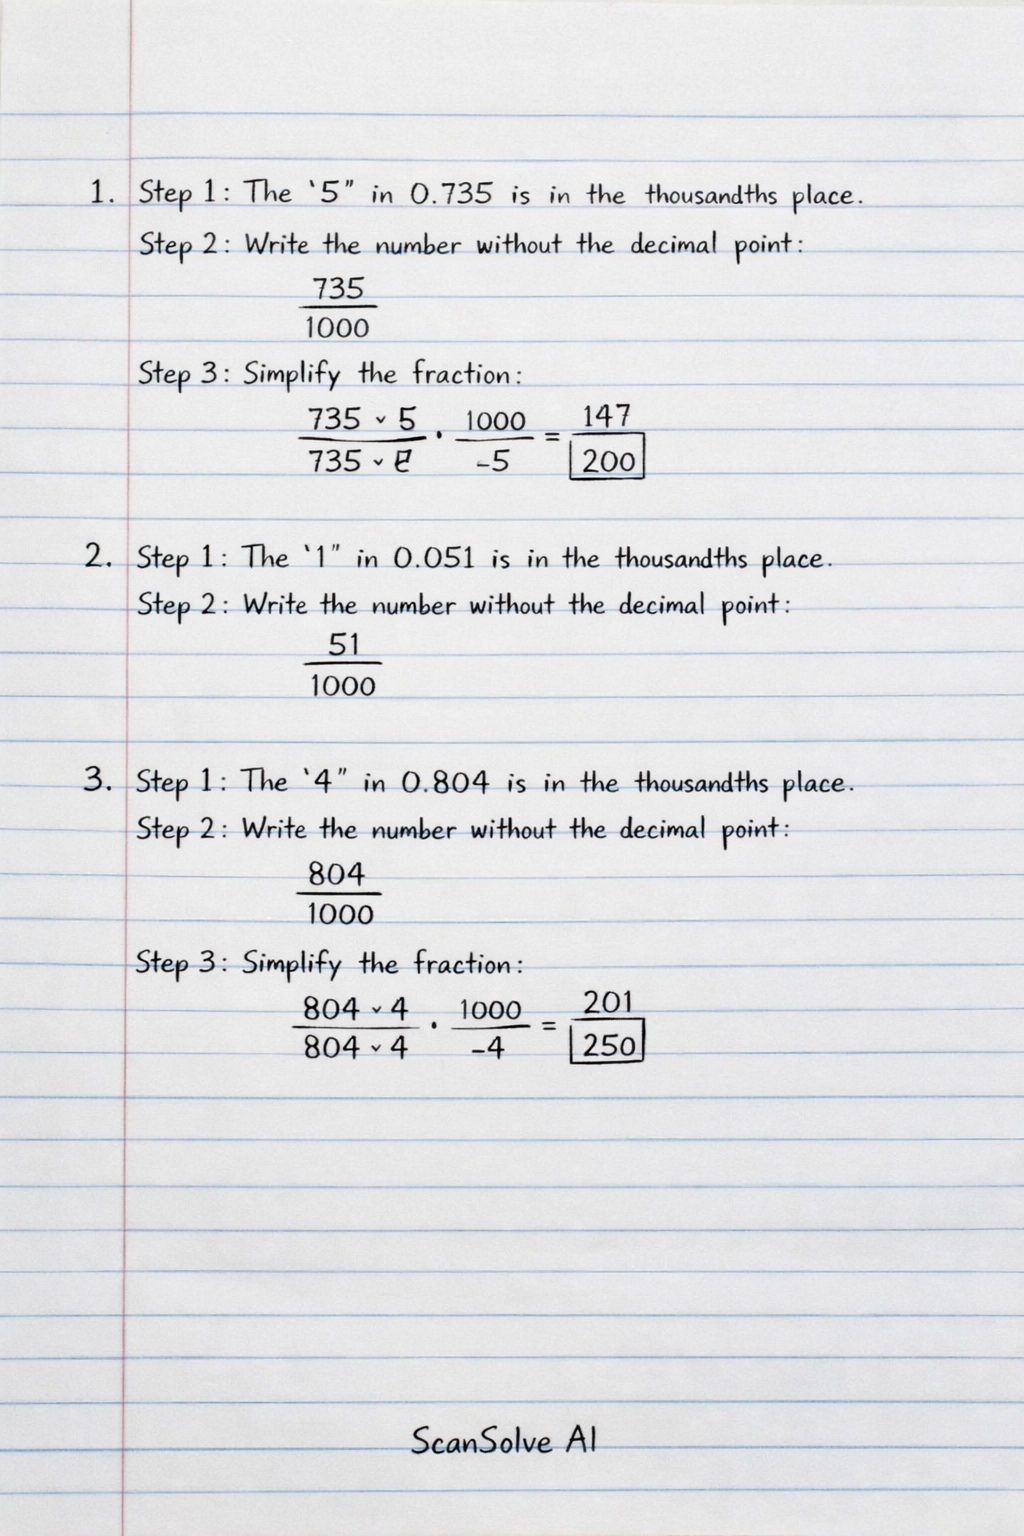 1. Step 1: The '5" in 0.735 is in the thousandths place.
Step 2: Write the number without the decimal point:
735
1000
Step 3: Simplify the fraction:
735 ˅ 5 · 1000 = 147
735 ˅ -5 200
2. Step 1: The '1" in 0.051 is in the thousandths place.
Step 2: Write the number without the decimal point:
51
1000
3. Step 1: The '4" in 0.804 is in the thousandths place.
Step 2: Write the number without the decimal point:
804
1000
Step 3: Simplify the fraction:
804 ˅ 4 · 1000 = 201
804 ˅ 4 -4 250
ScanSolve AI